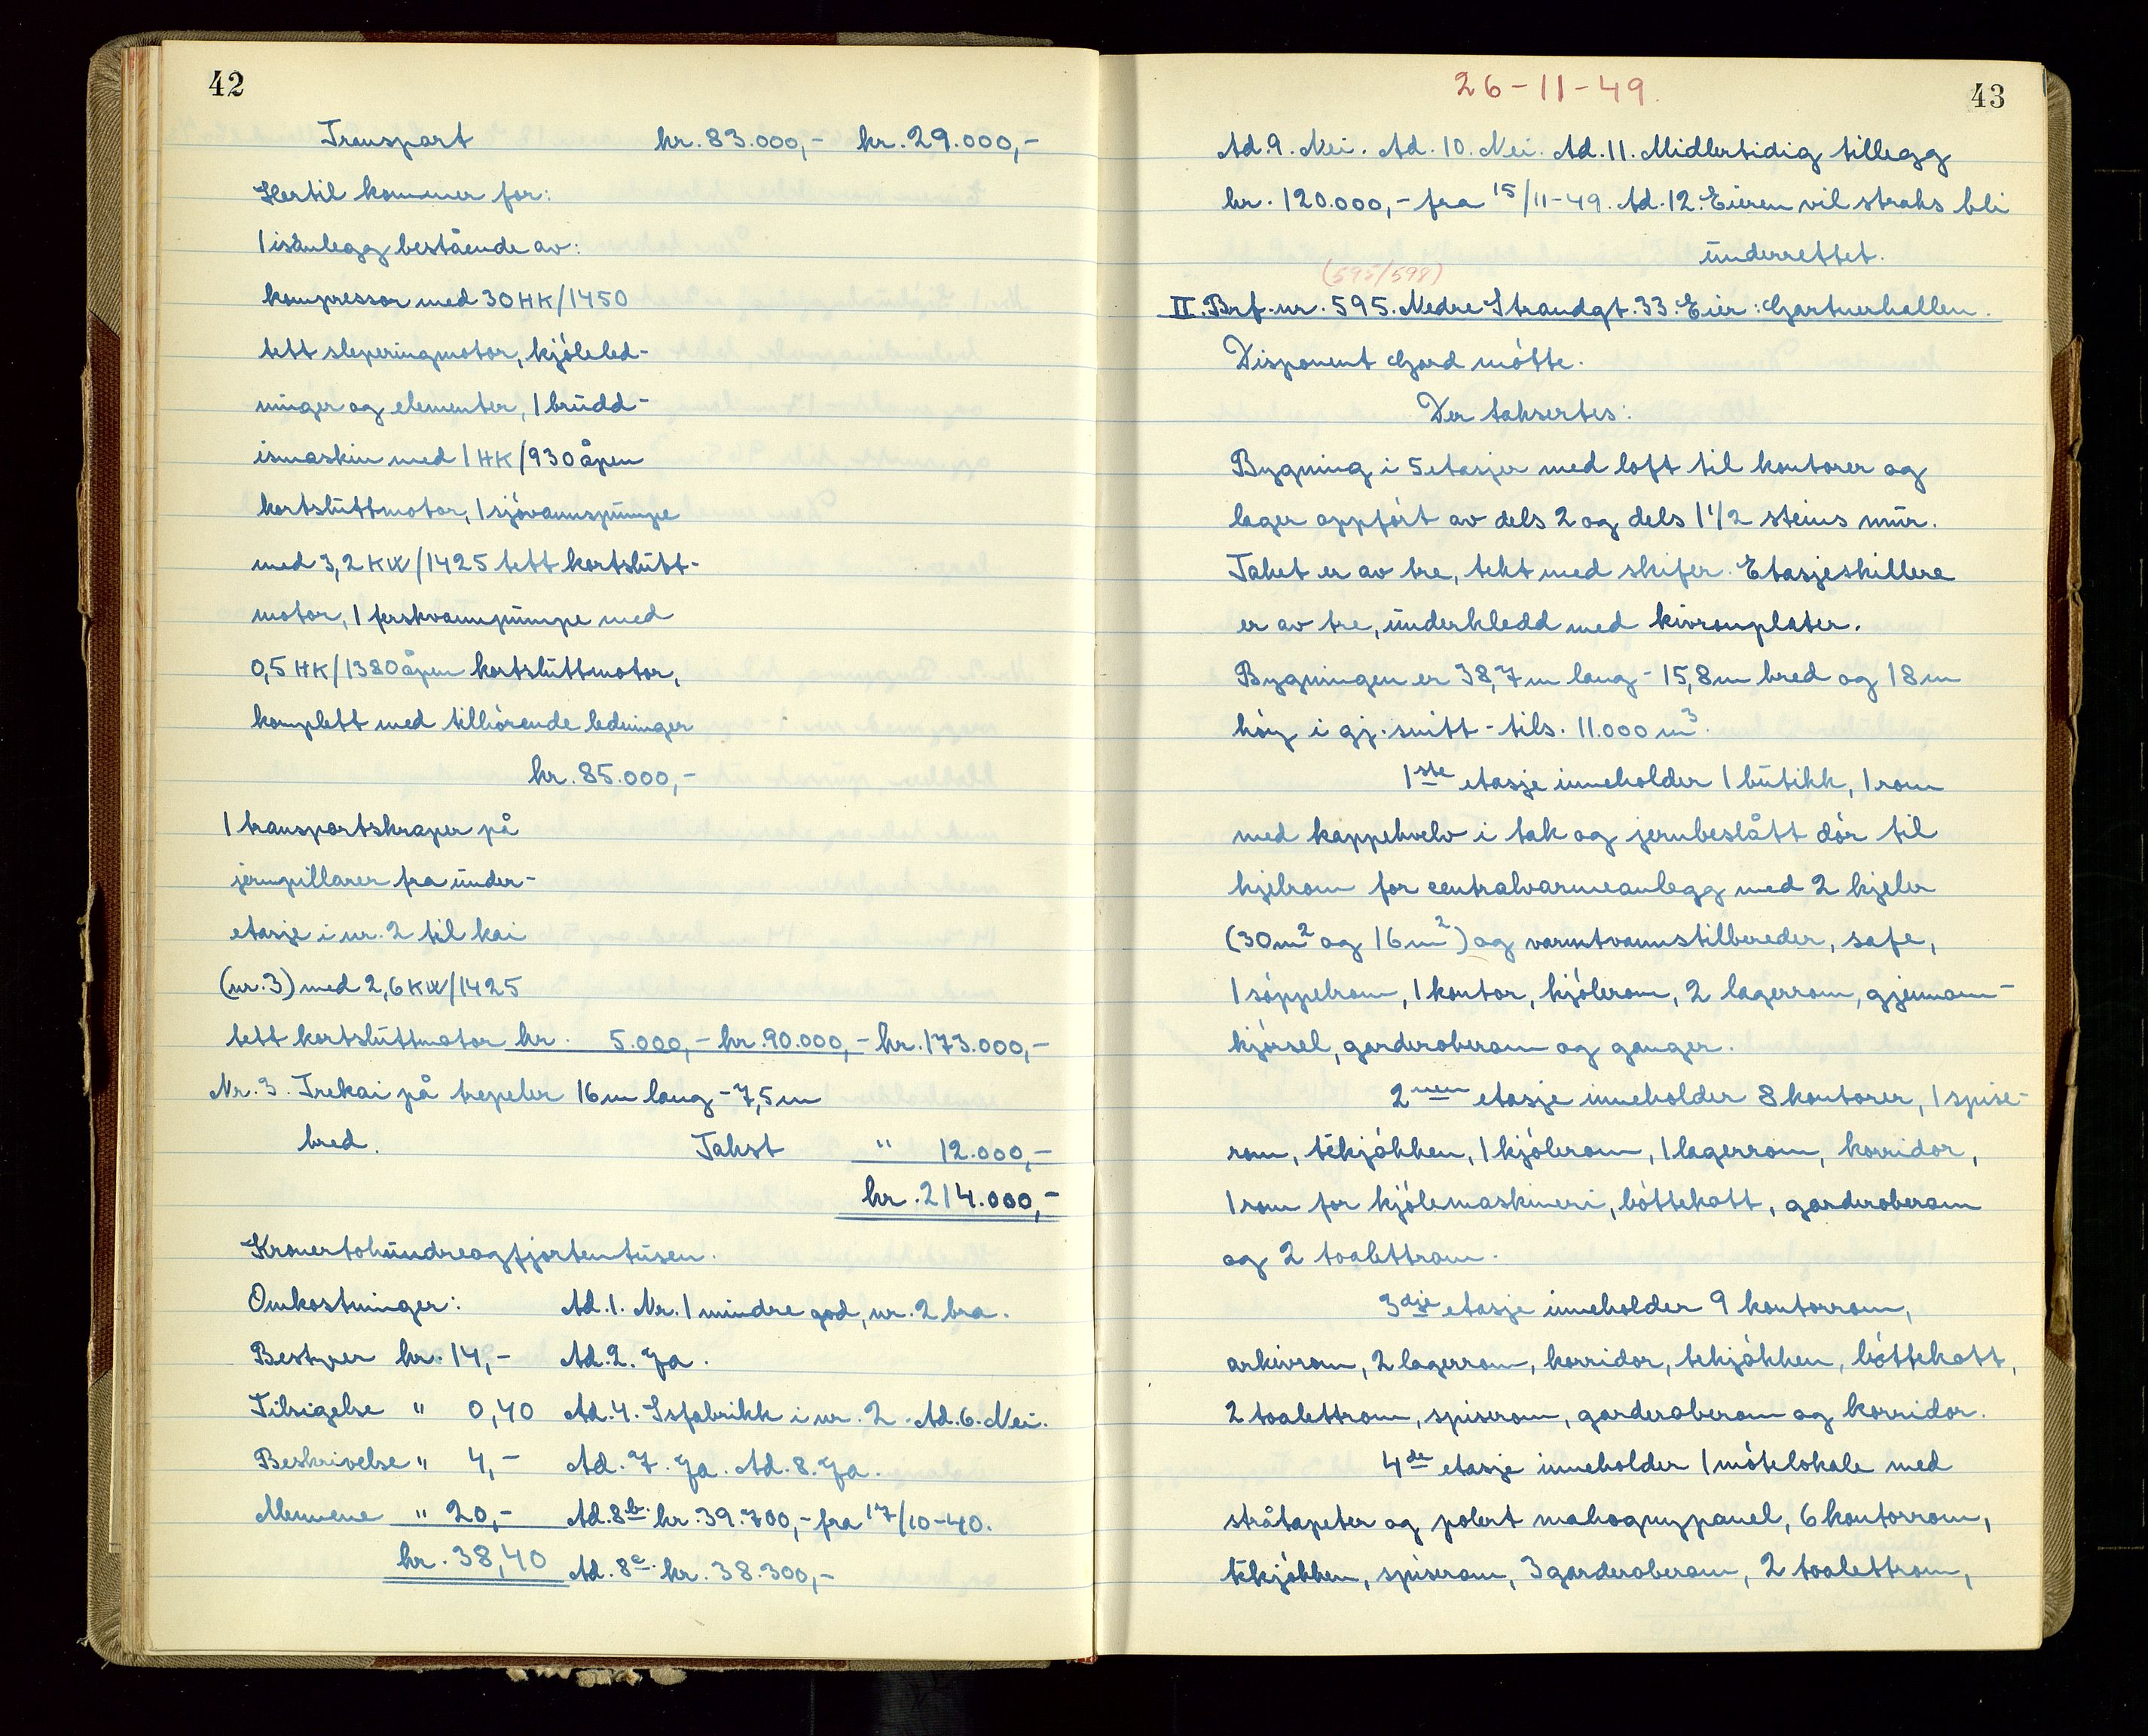 42
Transport kr. 83.000,- kr. 29.000,-
Hertil kommer for:
1 isanlegg bestående av:
kompressor med 30 HK/1450
tett sleperingmotor, kjøleled-
ninger og elementer, 1 brudd-
ismaskin med 1 HK/930 åpen
kortsluttmotor, 1 sjøvannspumpe
med 3,2 KW/1425 tett kortslutt-
motor, 1 ferskvannpumpe med
0,5 HK/1380 åpen kortsluttmotor,
komplett med tilhørende ledninger
kr. 85.000,-
1 transportskraper på
jernpillarer fra under-
etasje i nr. 2 til kai
(nr. 3) med 2,6 KW/1425
tett kortsluttmotor kr. 5.000,- kr. 90.000,- kr. 173.000,-
Nr. 3. Trekai på trepeler 16 m lang - 7,5 m
bred. Takst " 12.000,-
kr. 214.000,-
Kronertohundreogfjortentusen.
Omkostninger: Ad. 1. Nr. 1 mindre god, nr. 2 bra.
Bestyrer kr. 14,- Ad. 2. Ja.
Tilsigelse " 0,40 Ad. 4. Isfabrikk i nr. 2. Ad. 6. Nei.
Beskrivelse " 4,- Ad. 7. Ja. Ad. 8. Ja.
Mennene " 20,- Ad. 8b. kr. 39.700,- fra 17/10-40.
kr. 38,40 Ad. 8c. kr. 38.300,-
26-11-49.
43
Ad. 9. Nei. Ad. 10. Nei. Ad. 11. Midlertidig tillegg
kr. 120.000,- fra 15/11-49. Ad. 12. Eieren vil straks bli
underrettet.
(595/598)
II. Brf. nr. 595. Nedre Strandgt. 33. Eier: Gartnerhallen.
Disponent Gard møtte.
Der taksertes:
Bygning i 5 etasjer med loft til kontorer og
lager oppført av dels 2 og dels 1 1/2 steins mur.
Taket er av tre, tekt med skifer. Etasjeskillere
er av tre, underkledd med kivronplater.
Bygningen er 38,7 m lang - 15,8 m bred og 18 m
høy i gj. snitt - tils. 11.000 m3.
1ste etasje inneholder 1 butikk, 1 rom
med kappehvelv i tak og jernbeslått dør til
kjelrom for centralvarmeanlegg med 2 kjeler
(30 m2 og 16 m2) og varmtvannstilbereder, safe,
1 søppelrom, 1 kontor, kjølerom, 2 lagerrom, gjennom-
kjørsel, garderoberom og ganger.
2nen etasje inneholder 8 kontorer, 1 spise-
rom, tekjøkken, 1 kjølerom, 1 lagerrom, korridor,
1 rom for kjølemaskineri, bøttekott, garderoberom
og 2 toalettrom.
3dje etasje inneholder 9 kontorrom,
arkivrom, 2 lagerrom, korridor, tekjøkken, bøttekott,
2 toalettrom, spiserom, garderoberom og korridor.
4de etasje inneholder 1 møtelokale med
stråtapeter og polert mahognypanel, 6 kontorrom,
tekjøkken, spiserom, 3 garderoberom, 2 toalettrom,